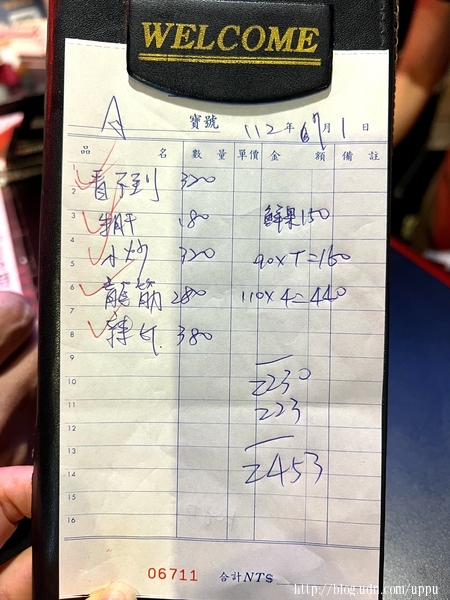 WELCOME
A
寶號 112年67月1日
品名 數量 單價 金額 備註
1
2 看不到 320
3 生肝 180 鮮果150
4
5 小炒 320 90×T=160
6 龍筋 280 110×4=440
7
8 380
9
10 2230
11 223
12
13
14 2453
15
16
06711 合計NT$
http://blog.udn.com/uppu